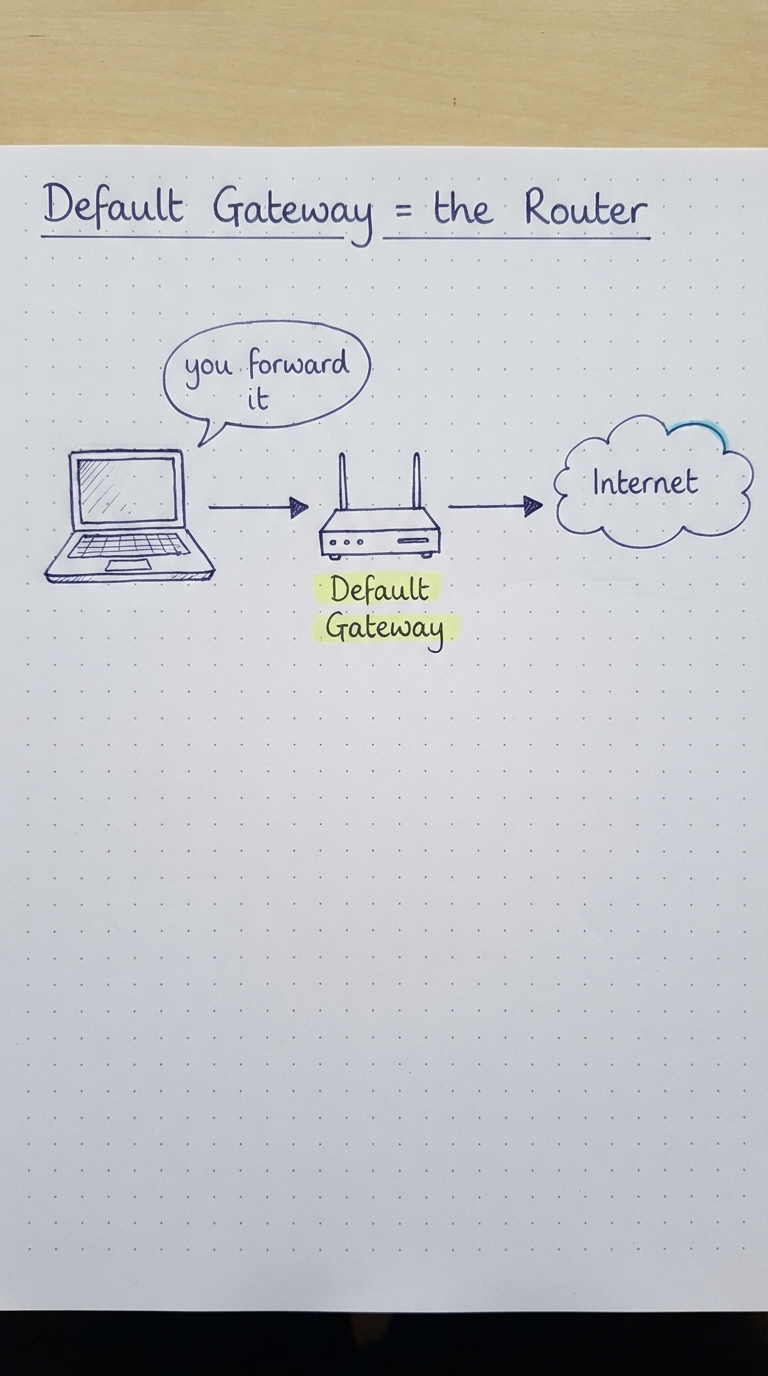 Default Gateway = the Router
you forward
it
Internet
Default
Gateway